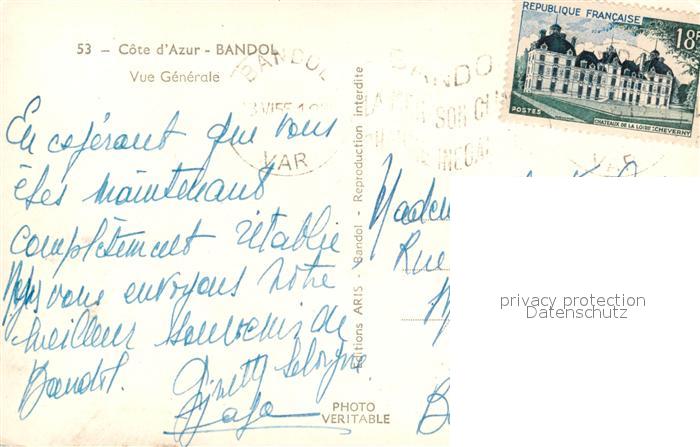 53 – Côte d'Azur - BANDOL
Vue Générale
RÉPUBLIQUE FRANÇAISE
18F
POSTES
CHATEAUX DE LA LOIRE : CHEVERNY
BANDOL
VAR
BANDOL
LA
SON
En espérant que vous
êtes maintenant
complètement rétablie
vous envoyons notre
meilleur souvenir de
Bandol.
Editions ARIS - Bandol - Reproduction interdite
PHOTO
VERITABLE
Rue
privacy protection
Datenschutz